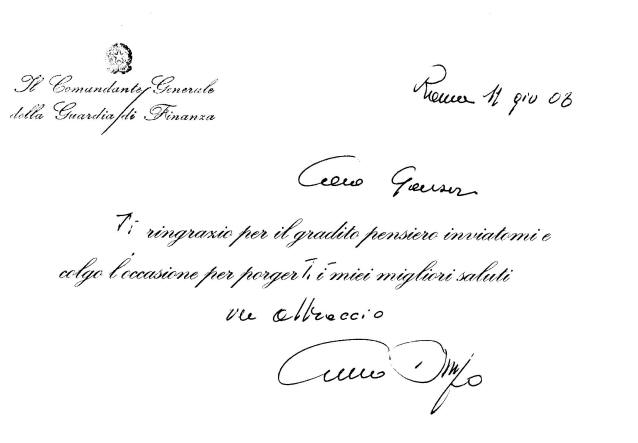 Il Comandante Generale
della Guardia di Finanza
Roma 11 giu 03
Caro
Ti ringrazio per il gradito pensiero inviatomi e
colgo l'occasione per porgerTi i miei migliori saluti
un abbraccio